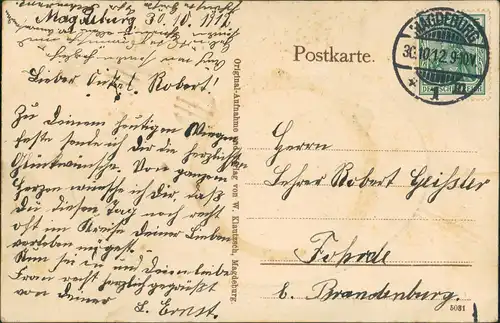 Magdeburg 30.10.1912.
Lieber Onkel Robert!
Zu Deinem heutigen Wiegen-
feste sende ich Dir die herzlichsten
Glückwünsche. Von ganzem
Herzen wünsche ich Dir, daß
Du diesen Tag noch recht
oft im Kreise Deiner Lieben
verleben mögest.
Nun sei Du und Deine liebe
Frau recht herzlich gegrüßt
von Deiner
E. Ernst.
Original-Aufnahme und Verlag von W. Klautzsch, Magdeburg.
Postkarte.
MAGDEBURG
30.10.12.9-10V.
* 1
Herrn
Lehrer Robert Geißler
Fohrde
b. Brandenburg.
5031